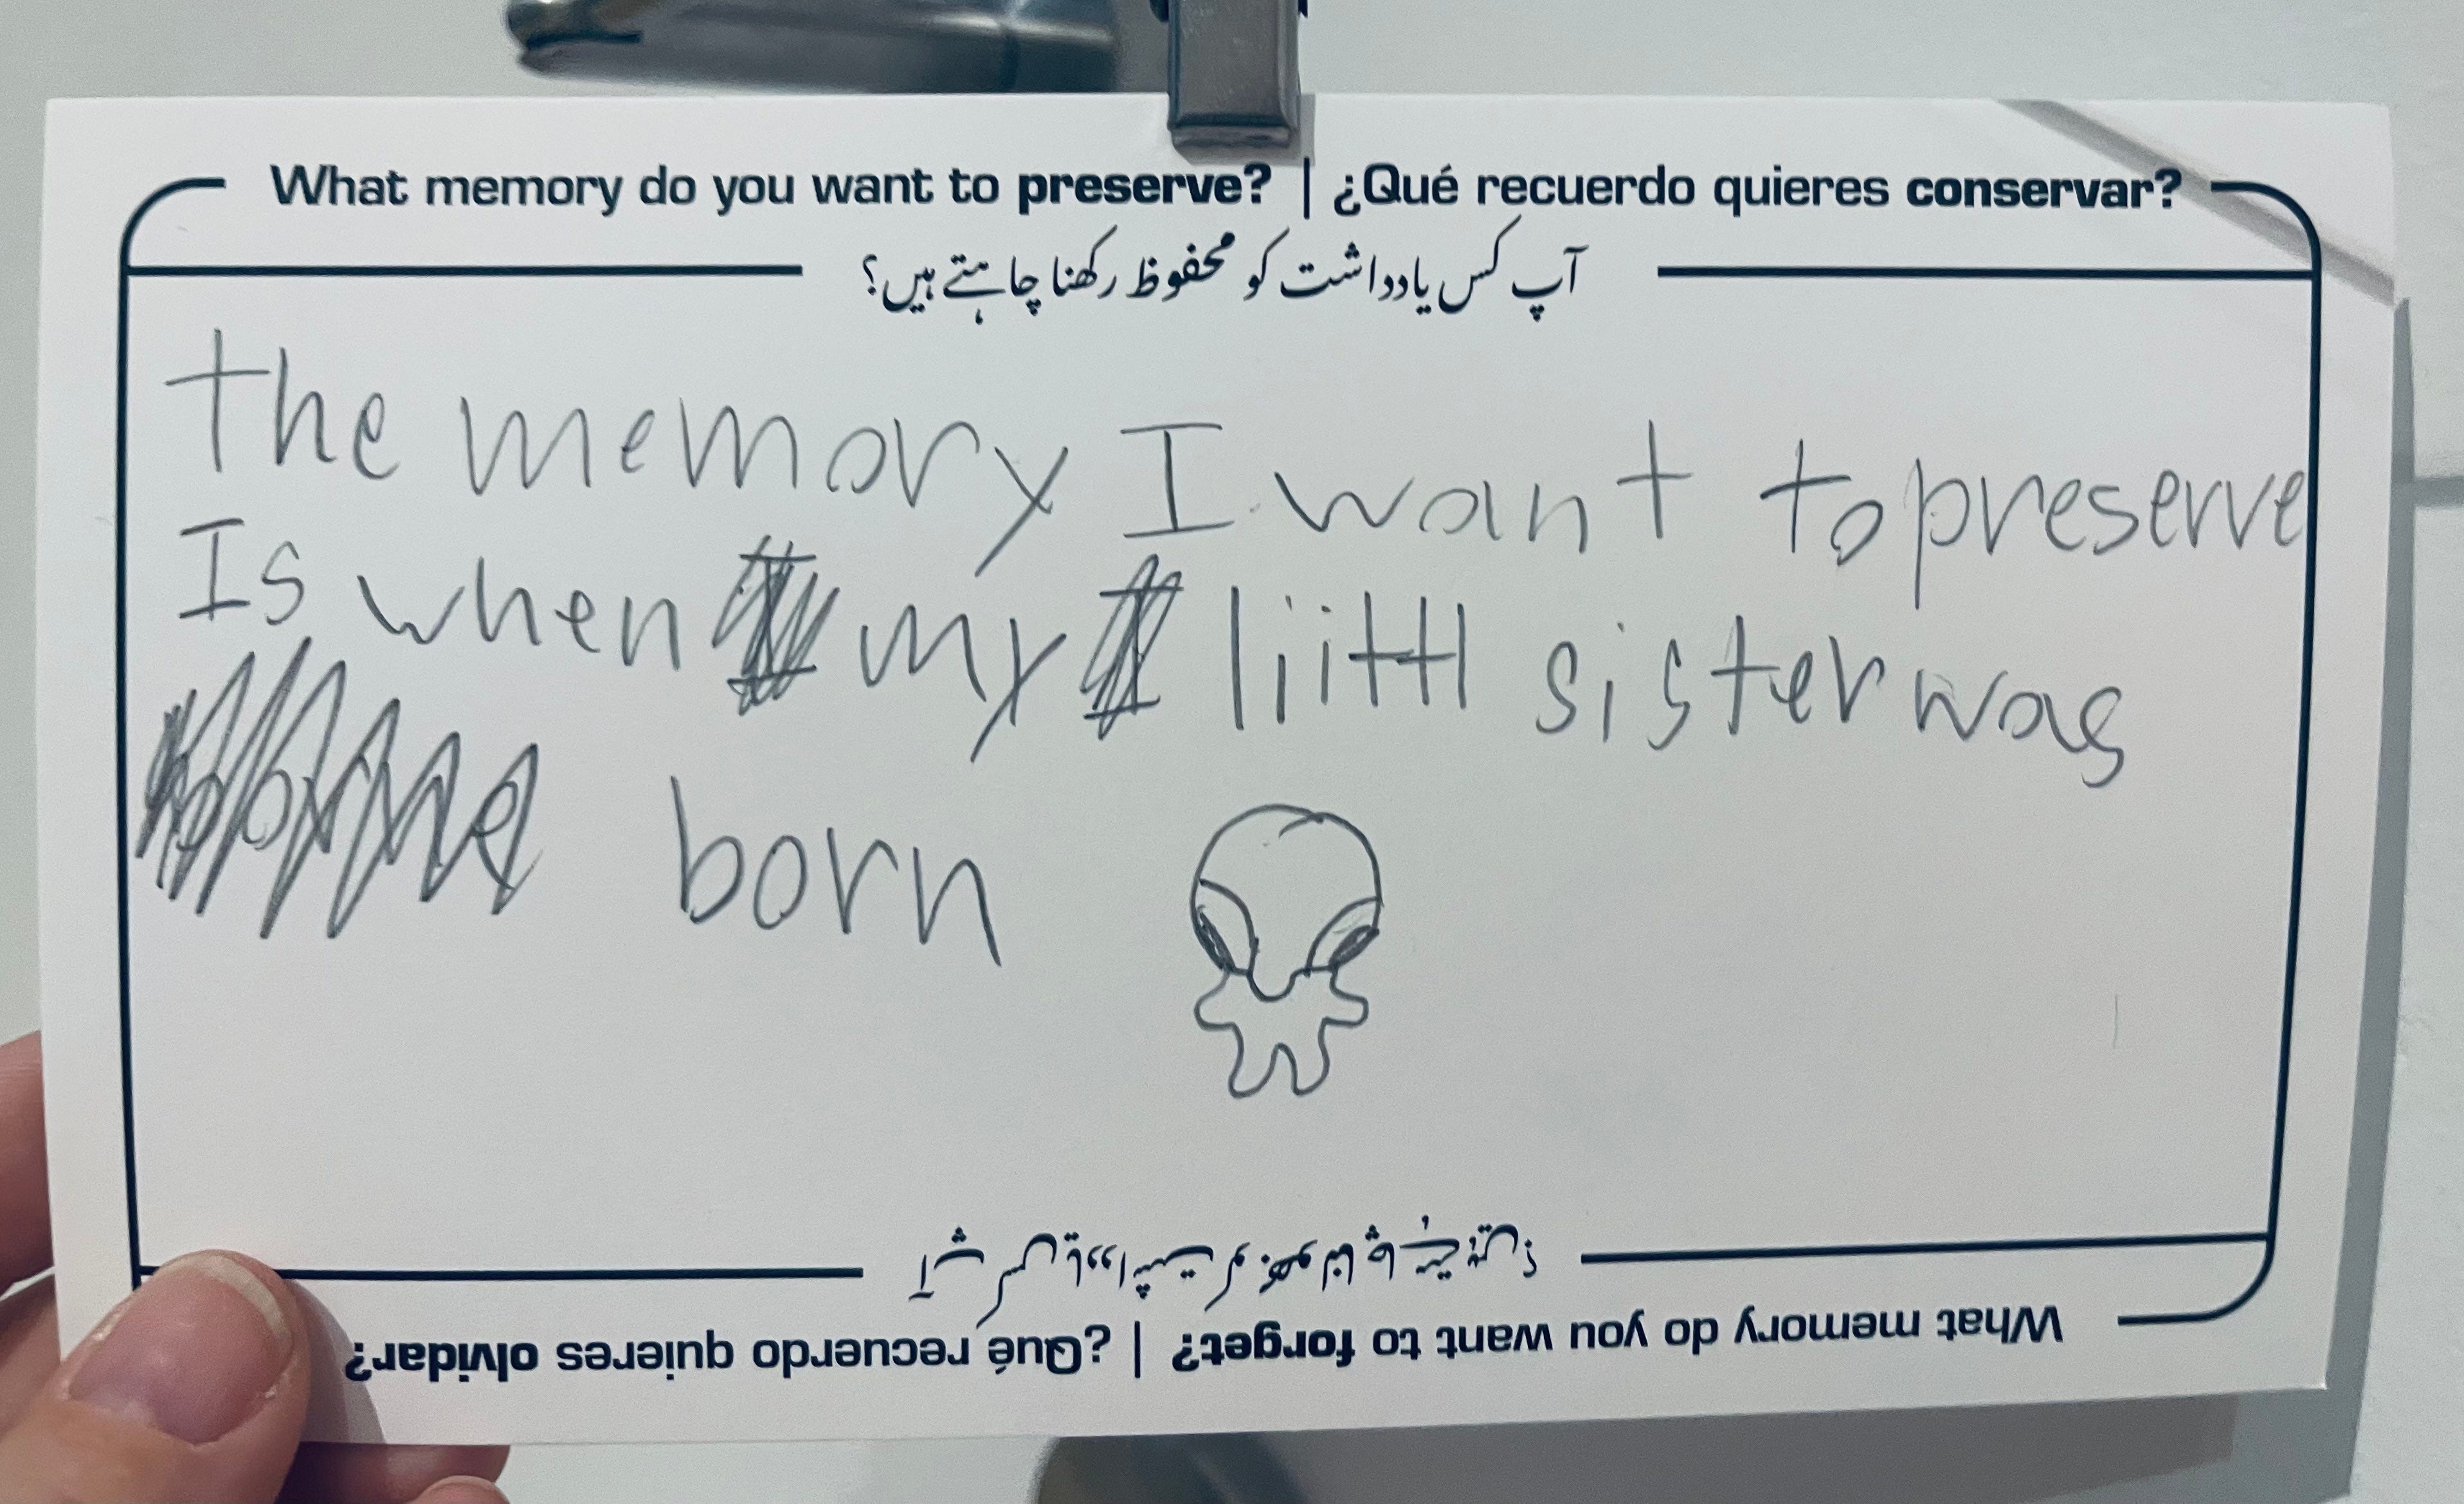 What memory do you want to preserve? | ¿Qué recuerdo quieres conservar?
آپ کس یادداشت کو محفوظ رکھنا چاہتے ہیں؟
the memory I want to preserve
Is when my liittl sister was
born
What memory do you want to forget? | ¿Qué recuerdo quieres olvidar?